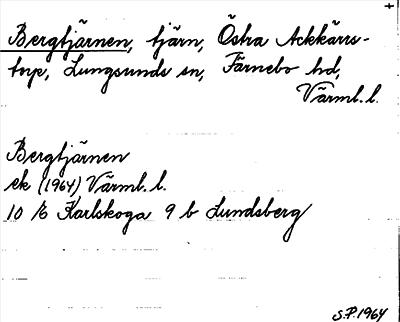 Bergtjärnen, tjärn, Östra Ackkärrs-
torp, Lungsunds sn, Färnebo hd,
Värml. l.
Bergtjärnen
ek (1964) Värml. l.
10 E Karlskoga 9 b Lundsberg
S.P. 1964